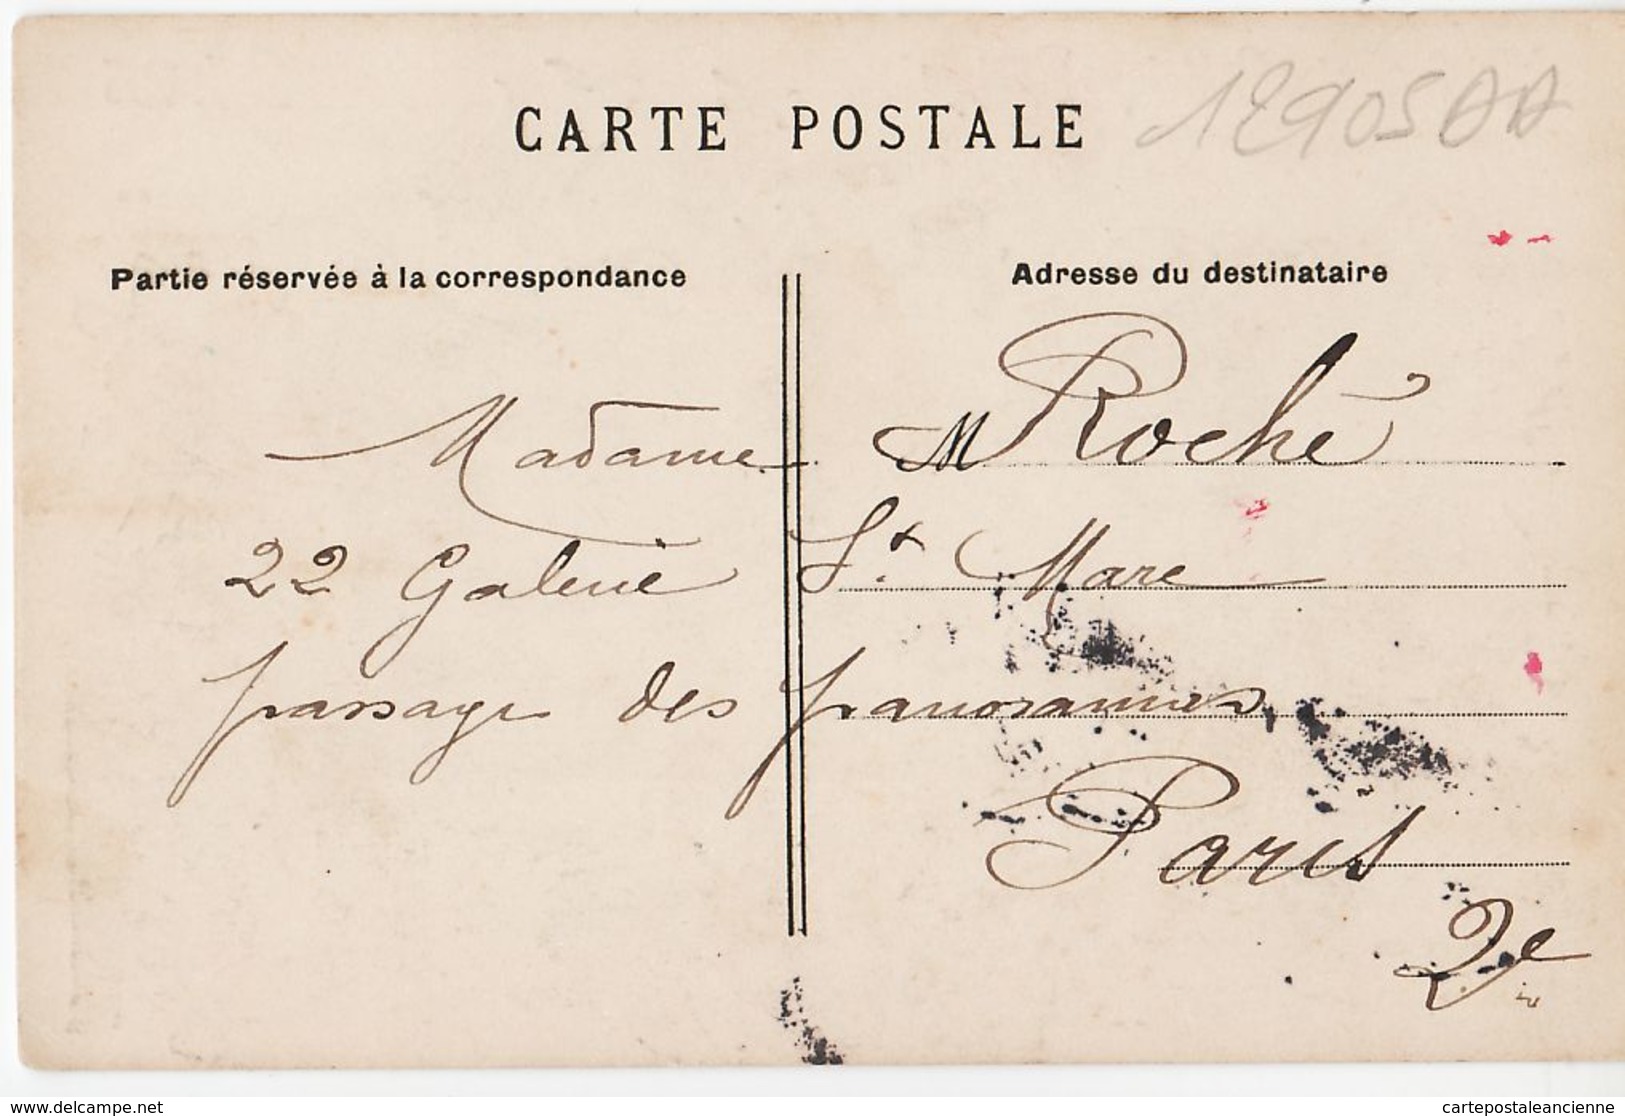 CARTE POSTALE
12905AA
Partie réservée à la correspondance
Adresse du destinataire
Madame M Roché
22 Galerie St Marc
passage des panoramas
Paris
2e
www.delcampe.net
cartepostaleancienne